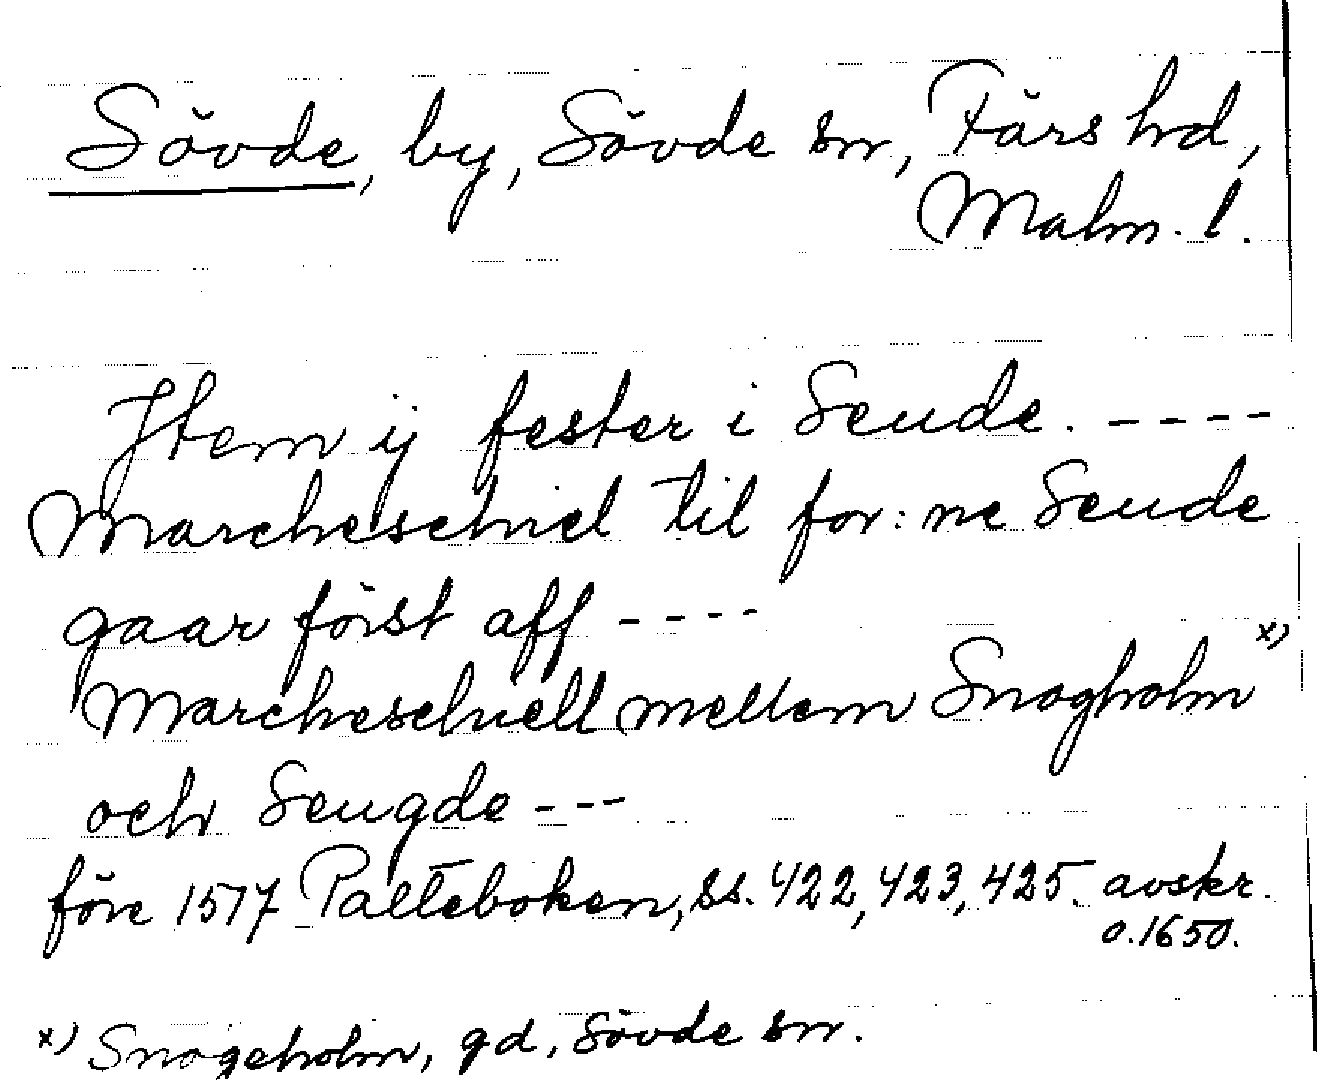 Sövde, by, Sövde sn, Färs hd,
Malm. l.
Item ij fester i Seude. ----
Marcheschiel til for:ne Seude
gaar först aff ----
Marcheschiell mellem Snogholm x)
och Seugde ---
före 1517 Palteboken, ss. 422, 423, 425. avskr.
o. 1650.
x) Snogeholm, gd, Sövde sn.